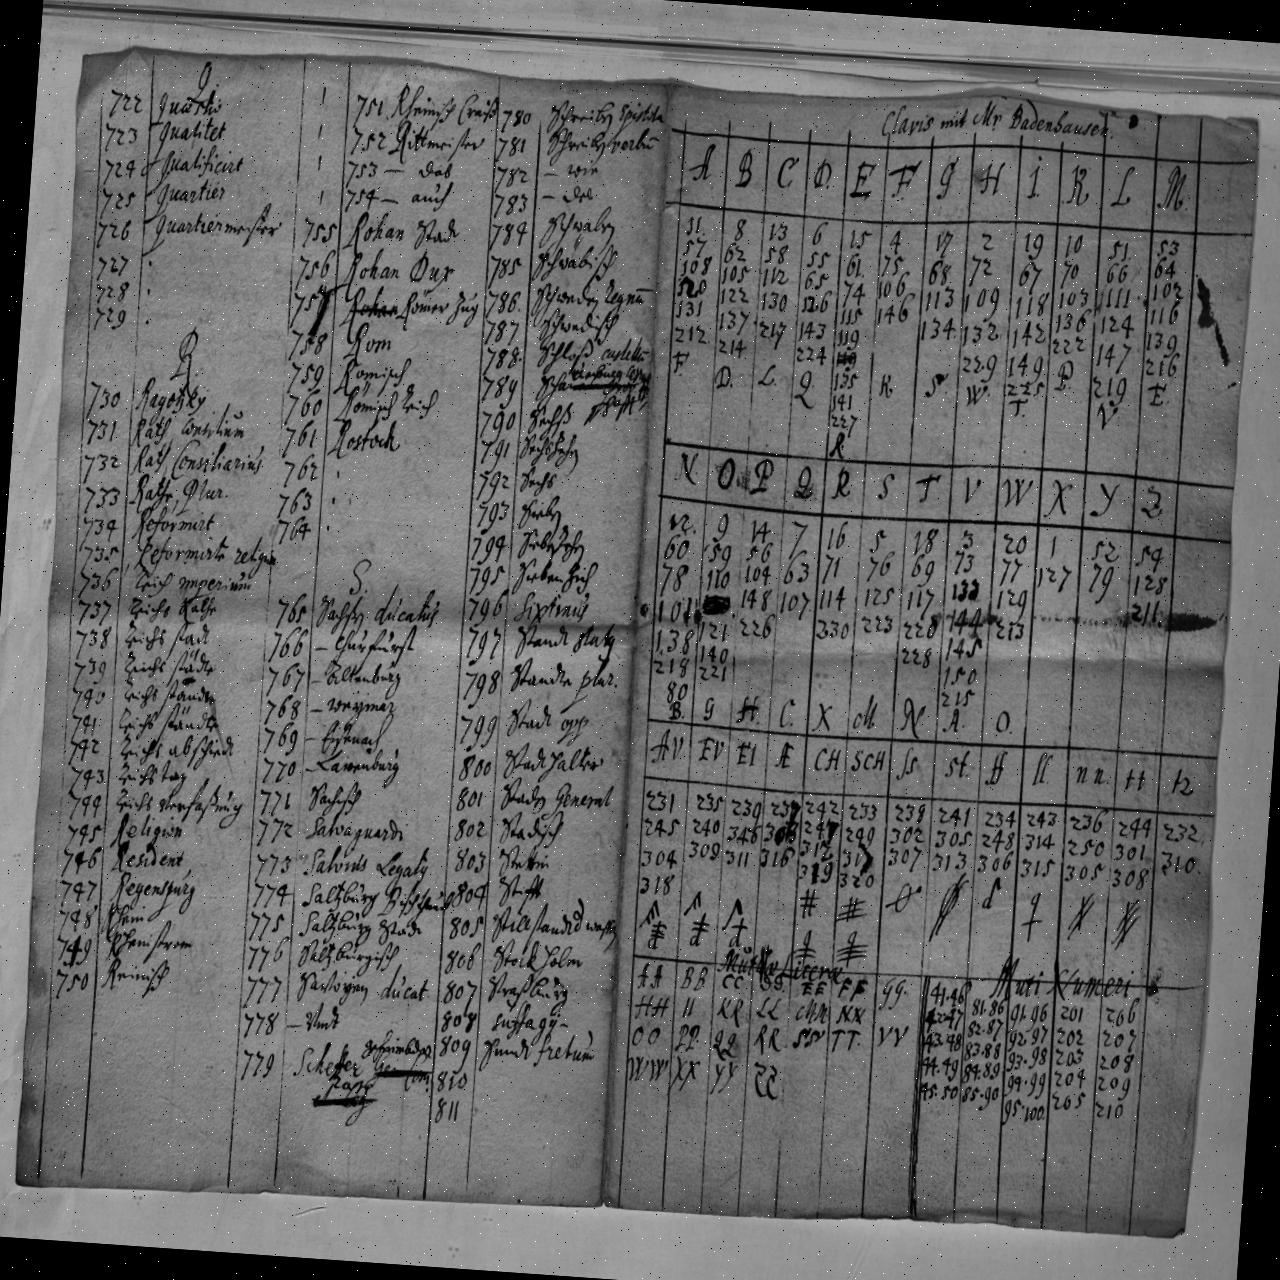 Q
722 Quasi
723 Qualitet
724 Qualificirt
725 Quartier
726 Quartiermeister
727
728
729
R
730 Ragotzky
731 Rath Consilium
732 Rath Consiliarius
733 Räthe, Plur.
734 Reformirt
735 Reformirte religion
736 Reich imperium
737 Reichs Räthe
738 Reichs Stadt
739 Reichs Städte
740 Reichs ständen
741 Reichs Stände
742 Reichs abschiedt
743 Reichstag
744 Reichs Verfaßung
745 Religion
746 Resident
747 Regenspurg
748 Rhein
749 Rheinstrom
750 Reinisch
751 Rheinisch Creiß
752 Rittmeister
753 — das
754 — auch
755 Rohan Stadt
756 Rohan Dux
757 Römer Zug
758 Rom
759 Römisch
760 Römisch Reich
761 Rostock
762
763
764
S.
765 Sachsen ducatus
766 — Churfürst
767 — Altenburg
768 — Weymar
769 — Eysenach
770 — Lawenburg
771 Sächsisch
772 Salvaguardi
773 Salvius Legatus
774 Saltzburg Bischthumb
775 Saltzburg Stadt
776 Saltzburgisch
777 Savoyen ducat
778
779 Scheffer
780 Schreiben Epistola
781 Schreiben verbum
782 — wie
783 — das
784 Schwaben
785 Schwäbisch
786 Schweden Regnum
787 Schwedisch
788 Schloß castellum
789
790 Sechß
791 Sechszehn
792 Sechs
793 Sieben
794 Siebenzehn
795 Siebenzich
796 Sixtinus
797 Standt status
798 Stände plur.
799 Stadt opp.
800 Stadthalter
801 Staden General
802 Stadisch
803 Stetin
804 Stifft
805 Stillstandt
806 Stockholm
807 Straßburg
808 suffragi-
809 Sundt fretum
810
811
Clavis mit Mr Badenhausen.
A B C D. E F. G H I. K L M.
31. 8 13 6 15 4 17 2 19 10 51 53
57 62 58 55 61 75 68 72 67 70 66 64
108 105 112 65 74 106 113 109 118 103 111 102
120 122 130 126 115 146 134 132 142 136 124 116
131 137 217 143 119 229 149 222 147 139
212 214 224 135 225 219 216
141
227
F. D. L. Q R K. S W. T. P V E.
N O P Q R S T V W X Y Z
12. 9 14 7 16 5 18 3 20 1 52 54
60 59 56 63 71 76 69 73 77 127 79 128
78 110 104 107 114 125 117 133 129 211
101 121 148 230 223 220 144 213
138 140 226 228 145
218 221 150
80 215
B. G H. C. X M. N A. O.
AV EV EI Æ CH SCH ss st. ff ll nn tt tz
231 235 239 237 242 233 238 241 234 243 236 244 232
245 240 246 303 247 249 302 305 248 314 250 301 310
304 309 311 316 312 317 307 313 306 315 305 308
318 319 320
Mutæ Literæ
AA BB CC DD EE FF GG.
HH II KK LL MM NN
OO PP. QQ RR SS TT. VV
WW XX YY ZZ
Muti Numeri
41.46 81.86 91.96 201 206
42.47 82.87 92.97 202 207
43.48 83.88 93.98 203 208
44.49 84.89 94.99 204 209
45.50 85.90 95.100 205 210